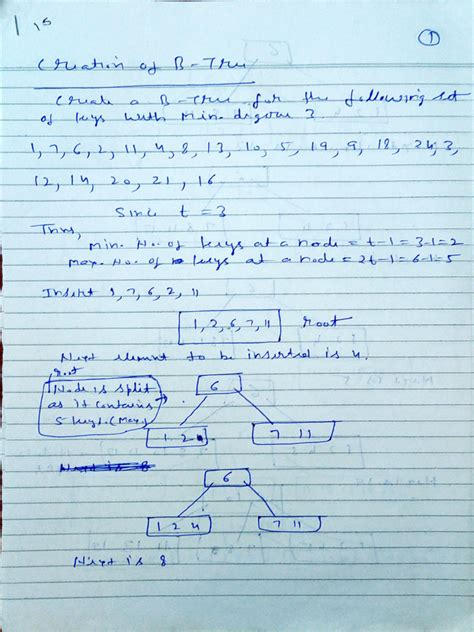 15
1
Creation of B-Tree
Create a B-tree for the following set
of keys with Min. degree 3.
1, 7, 6, 2, 11, 4, 8, 13, 10, 5, 19, 9, 18, 24, 3,
12, 14, 20, 21, 16
Since t = 3
Thus,
Min. No. of keys at a node = t-1 = 3-1 = 2
Max. No. of keys at a node = 2t-1 = 6-1 = 5
Insert 1, 7, 6, 2, 11
1, 2, 6, 7, 11 root
Next element to be inserted is 4.
root
Node is split
as it contains
5 keys. (Max)
6
1 2
7 11
Next is 8
6
1 2 4
7 11
Next is 8